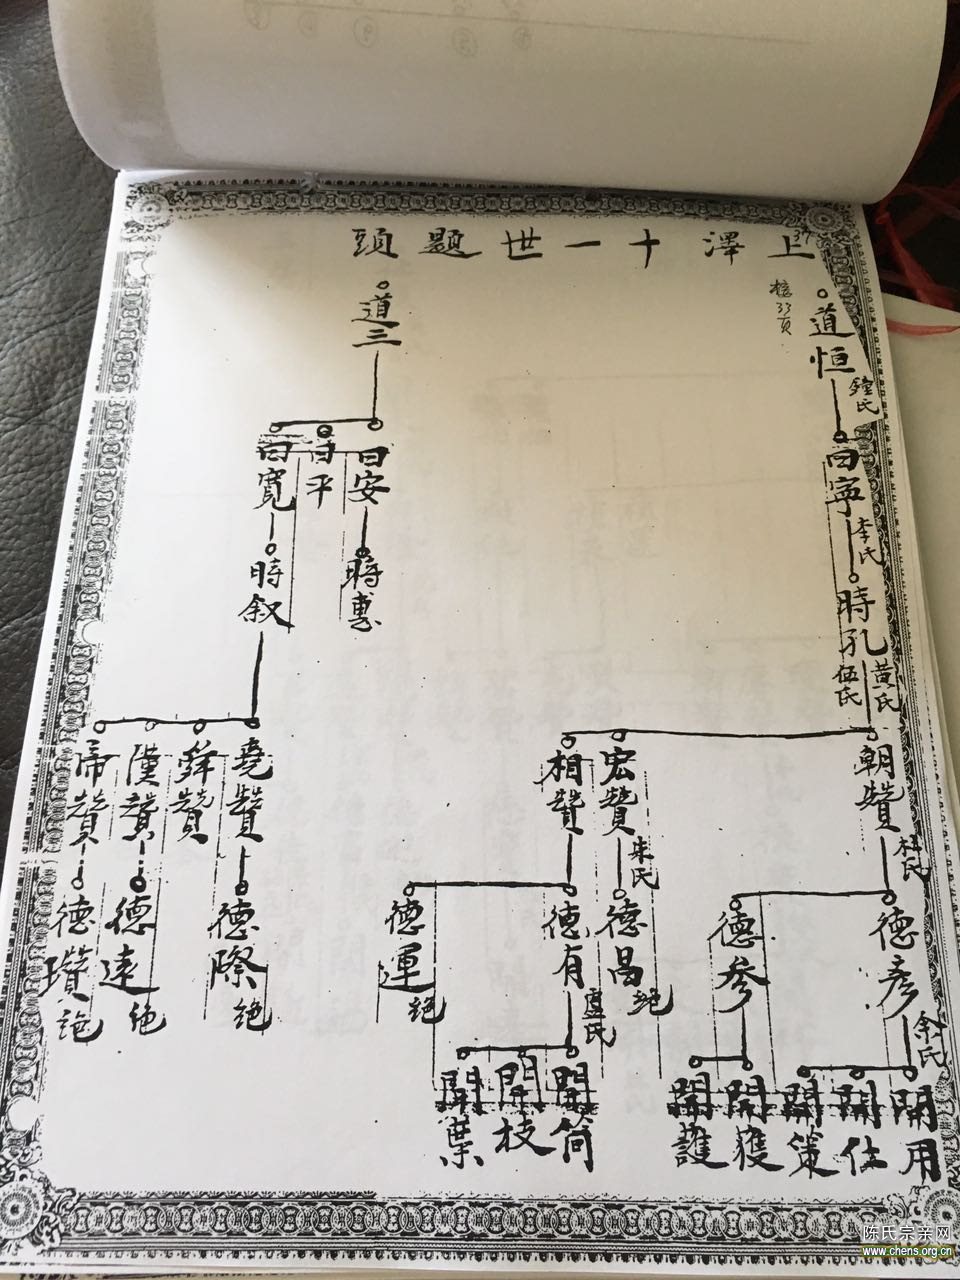 上澤十一世題頭
37
接33頁
道恒
鐘氏
曰寧
李氏
時孔
黄氏
伍氏
朝贊
杜氏
宏贊
朱氏
相贊
德彦
余氏
德參
德昌
绝
德有
盧氏
德運
绝
開用
開仕
開策
開獲
開護
開简
開枝
開葉
道三
曰安
曰平
曰寬
時惠
時叙
堯贊
舜贊
漢贊
啼贊
德際
绝
德遠
绝
德瓚
绝
陈氏宗亲网
www.chens.org.cn